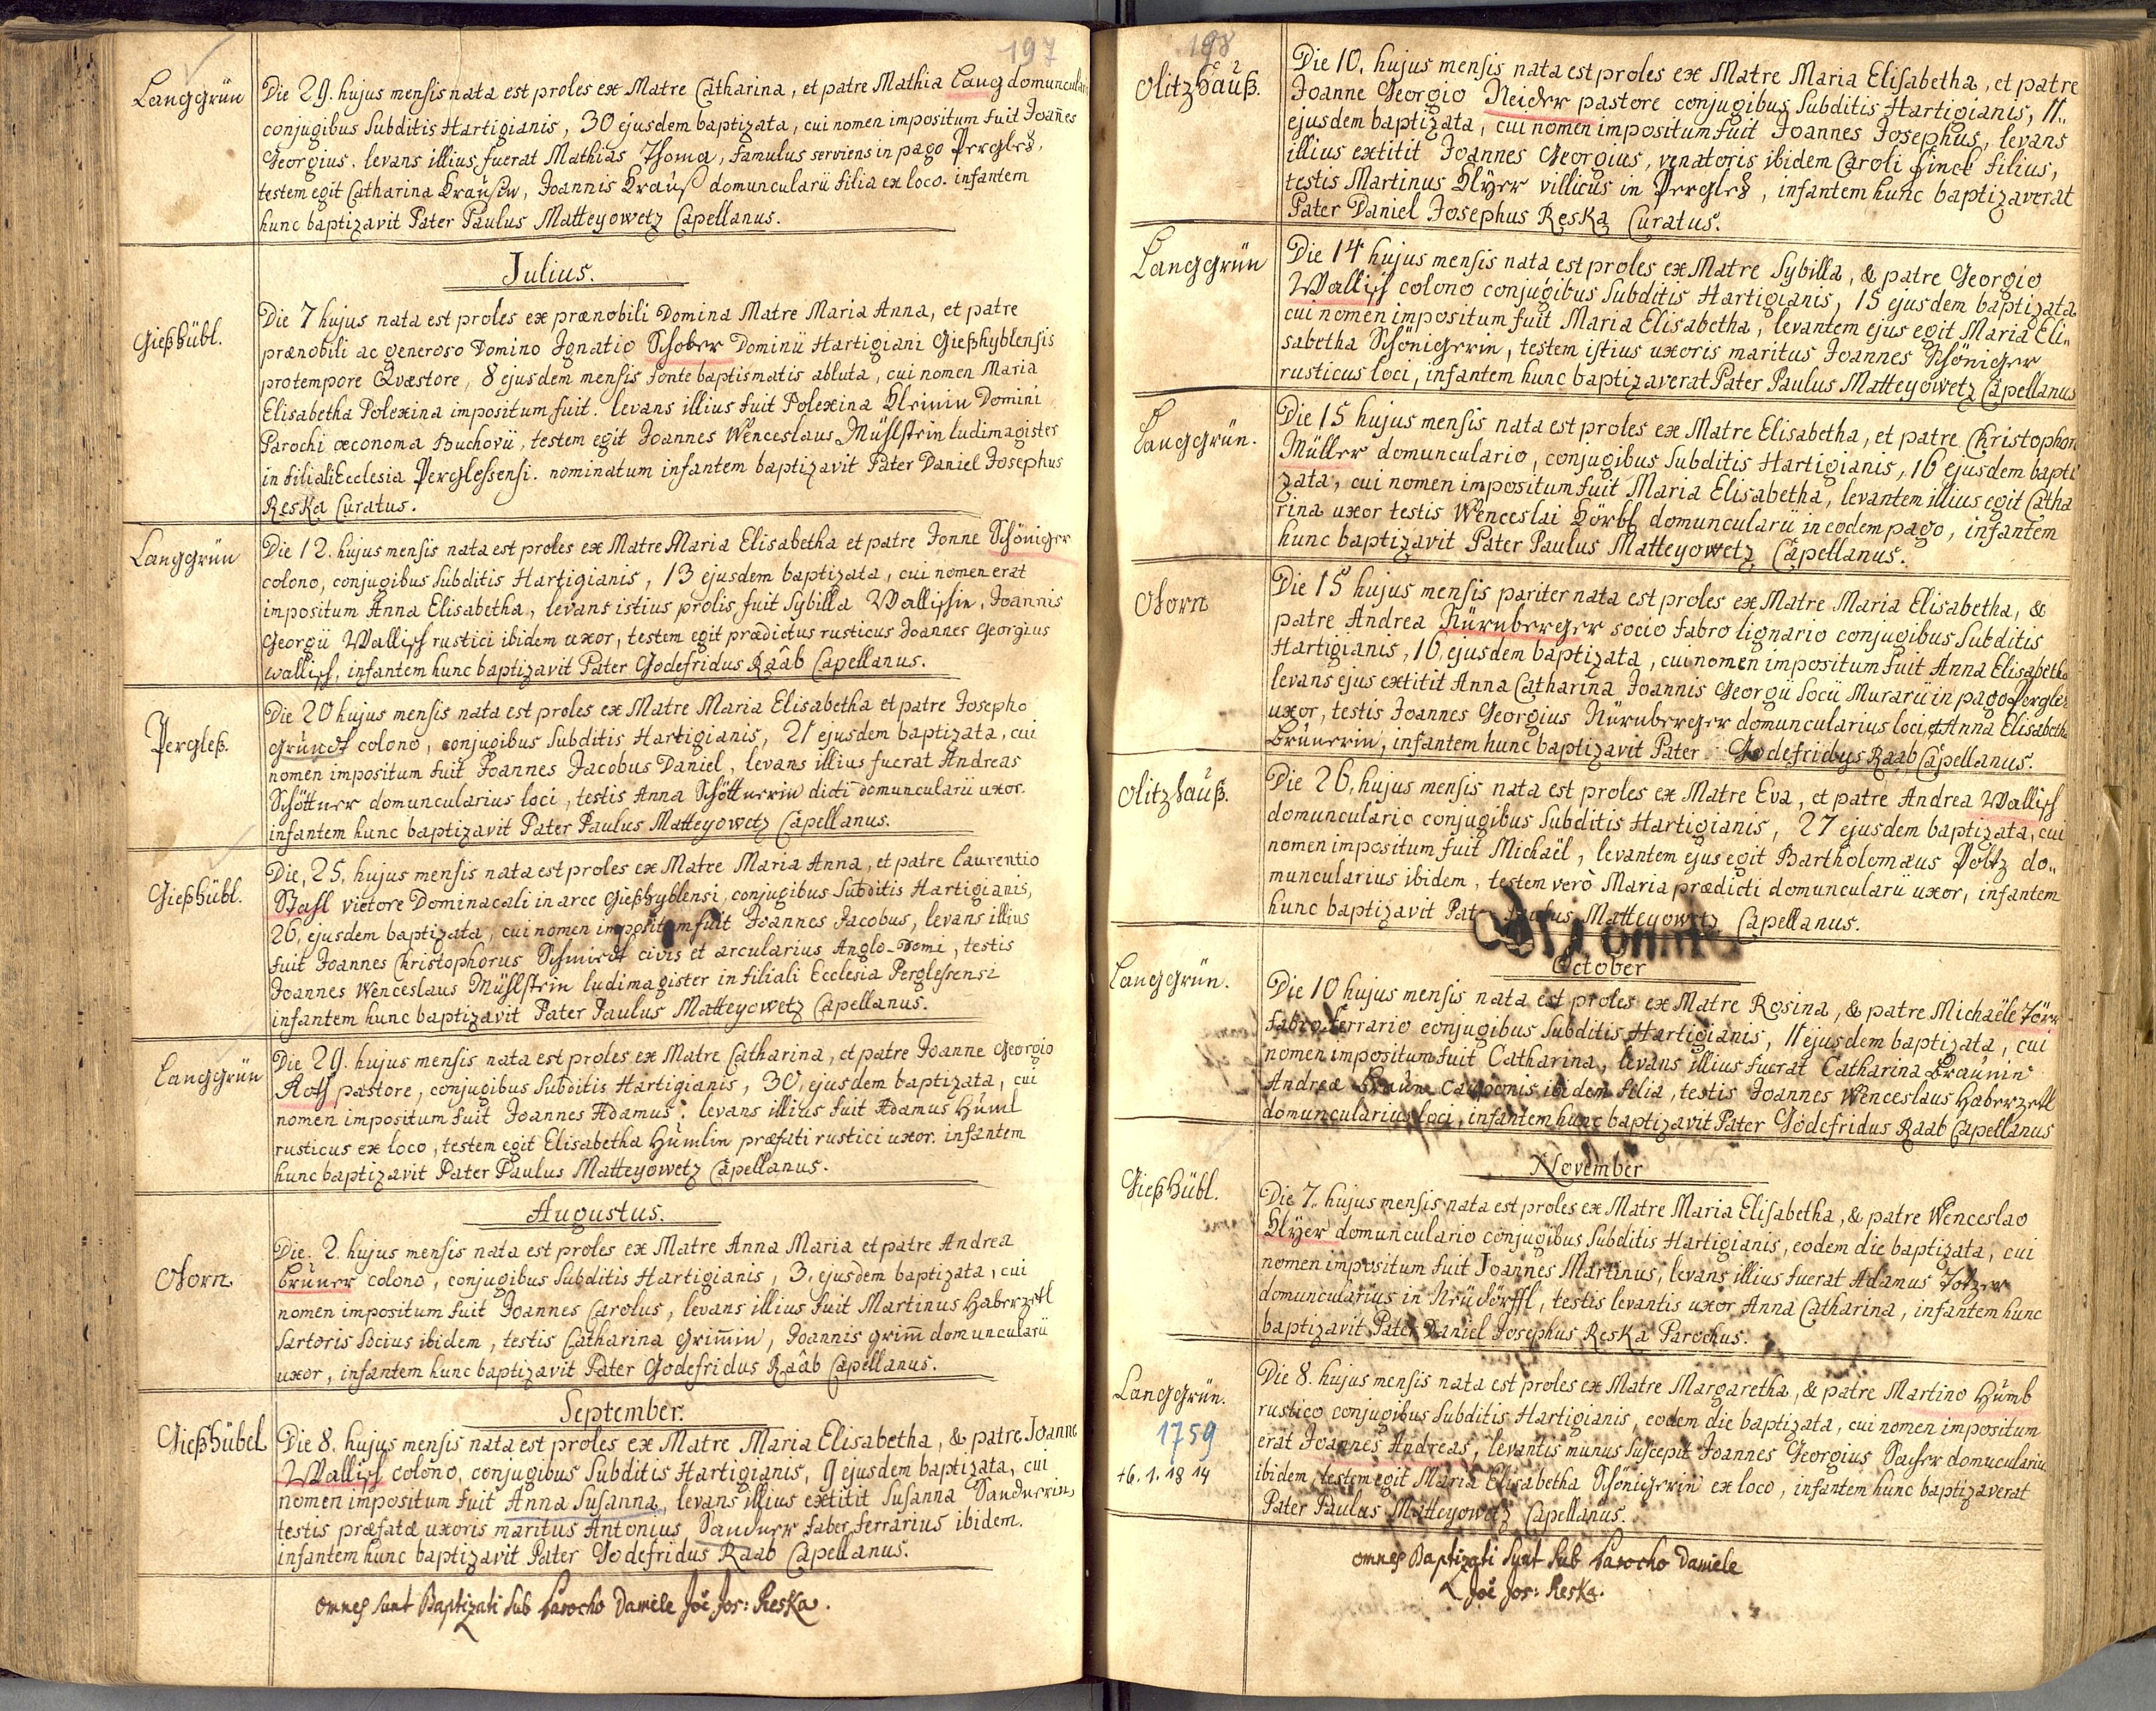 197
Langgrün
Die 29. hujus mensis nata est proles ex Matre Catharina, et patre Mathia Lang domuncular
conjugibus Subditis Hartigianis, 30 ejusdem baptizata, cui nomen impositum fuit Joañes
Georgius. levans illius fuerat Mathias Thoma, famulus serviens in pago Pergles,
testem egit Catharina Krausin, Joannis Krauß domuncularii filia ex loco. infantem
hunc baptizavit Pater Paulus Matteyowetz Capellanus.
Julius.
Gießhübl.
Die 7 hujus nata est proles ex prænobili Domina Matre Maria Anna, et patre
prænobili ac generoso Domino Ignatio Schober Dominii Hartigiani Gießhyblensis
protempore Quæstore, 8 ejusdem mensis fonte baptismatis abluta, cui nomen Maria
Elisabetha Polexina impositum fuit. levans illius fuit Polexina Domini
Parochi œconoma Buchovii, testem egit Joannes Wenceslaus Mühlstein ludimagister
in filiali Ecclesia Perglessensi. nominatum infantem baptizavit Pater Daniel Josephus
Reska Curatus.
Langgrün
Die 12. hujus mensis nata est proles ex Matre Maria Elisabetha et patre Jonne Schöniger
colono, conjugibus Subditis Hartigianis, 13 ejusdem baptizata, cui nomen erat
impositum Anna Elisabetha, levans istius prolis fuit Sybilla Wallisin, Joannis
Georgii Wallis rustici ibidem uxor, testem egit prædictus rusticus Joannes Georgius
Wallis, infantem hunc baptizavit Pater Godefridus Raâb Capellanus.
Pergleß.
Die 20 hujus mensis nata est proles ex Matre Maria Elisabetha et patre Josepho
Gründl colono, conjugibus Subditis Hartigianis, 21 ejusdem baptizata, cui
nomen impositum fuit Joannes Jacobus Daniel, levans illius fuerat Andreas
Schöttner domuncularius loci, testis Anna Schöttnerin dicti domuncularii uxor.
infantem hunc baptizavit Pater Paulus Matteyowetz Capellanus.
Gießhübl.
Die, 25. hujus mensis nata est proles ex Matre Maria Anna, et patre Laurentio
Stahl vietore Dominacali in arce Gießhyblensi, conjugibus Subditis Hartigianis,
26, ejusdem baptizata, cui nomen impositum fuit Joannes Jacobus, levans illius
fuit Joannes Christophorus Schmidt civis et arcularius Anglo-Domi, testis
Joannes Wenceslaus Mühlstein ludimagister in filiali Ecclesia Perglessensi
infantem hunc baptizavit Pater Paulus Matteyowetz Capellanus.
Langgrün
Die 29. hujus mensis nata est proles ex Matre Catharina, et patre Joanne Georgio
Roth pastore, conjugibus Subditis Hartigianis, 30, ejusdem baptizata, cui
nomen impositum fuit Joannes Adamus. levans illius fuit Adamus Hüml
rusticus ex loco, testem egit Elisabetha Hümlin præfati rustici uxor. infantem
hunc baptizavit Pater Paulus Matteyowetz Capellanus.
Augustus.
Sorn
Die. 2. hujus mensis nata est proles ex Matre Anna Maria et patre Andrea
Brüner colono, conjugibus Subditis Hartigianis, 3. ejusdem baptizata, cui
nomen impositum fuit Joannes Carolus, levans illius fuit Martinus Haberzetl
Sartoris Socius ibidem, testis Catharina Grim̄in, Joannis Grim̄ domuncularii
uxor, infantem hunc baptizavit Pater Godefridus Raâb Capellanus.
September.
Gießhübel
Die 8. hujus mensis nata est proles ex Matre Maria Elisabetha, & patre Joanne
Wallis colono, conjugibus Subditis Hartigianis, 9 ejusdem baptizata, cui
nomen impositum fuit Anna Susanna, levans illius extitit Susanna Sandnerin,
testis præfatæ uxoris maritus Antonius Sandner faber ferrarius ibidem.
infantem hunc baptizavit Pater Godefridus Raab Capellanus.
omnes sunt Baptizati sub Parocho Daniele Joē Jos: Reska.
198
Olitzhauß.
Die 10. hujus mensis nata est proles ex Matre Maria Elisabetha, et patre
Joanne Georgio Neider pastore conjugibus Subditis Hartigianis, 11..
ejusdem baptizata, cui nomen impositum fuit Joannes Josephus, levans
illius extitit Joannes Georgius, venatoris ibidem Caroli Finck filius,
testis Martinus Klyer villicus in Pergles, infantem hunc baptizaverat
Pater Daniel Josephus Reska Curatus.
Langgrün
Die 14 hujus mensis nata est proles ex Matre Sybilla, & patre Georgio
Wallis colono conjugibus Subditis Hartigianis, 15 ejusdem baptizata
cui nomen impositum fuit Maria Elisabetha, levantem ejus egit Maria Eli„
sabetha Schönigerin, testem istius uxoris maritus Joannes Schöniger
rusticus loci, infantem hunc baptizaverat Pater Paulus Matteyowetz Capellanus
Langgrün.
Die 15 hujus mensis nata est proles ex Matre Elisabetha, et patre Christophoro
Müller domunculario, conjugibus Subditis Hartigianis, 16 ejusdem bapti
zata, cui nomen impositum fuit Maria Elisabetha, levantem illius egit Catha
rina uxor testis Wenceslai Körbl domuncularii in eodem pago, infantem
hunc baptizavit Pater Paulus Matteyowetz Capellanus.
Sorn
Die 15 hujus mensis pariter nata est proles ex Matre Maria Elisabetha, &
patre Andrea Nürnberger socio fabro lignario conjugibus Subditis
Hartigianis, 16, ejusdem baptizata, cui nomen impositum fuit Anna Elisabetha
levans ejus extitit Anna Catharina Joannis Georgii Socii Murarii in pago Pergles
uxor, testis Joannes Georgius Nürnberger domuncularius loci, et Anna Elisabetha
Brünerin, infantem hunc baptizavit Pater Godefridus Raab Capellanus.
Olitzhauß.
Die 26, hujus mensis nata est proles ex Matre Eva, et patre Andrea Wallis
domunculario conjugibus Subditis Hartigianis, 27 ejusdem baptizata, cui
nomen impositum fuit Michaël, levantem ejus egit Bartholomæus Poltz do„
muncularius ibidem, testem verò Maria prædicti domuncularii uxor, infantem
hunc baptizavit Pater Paulus Matteyowetz Capellanus.
October
Langgrün.
Die 10 hujus mensis nata est proles ex Matre Rosina, & patre Michaële
fabro ferrario conjugibus Subditis Hartigianis, 11 ejusdem baptizata, cui
nomen impositum fuit Catharina, levans illius fuerat Catharina Braunin
Andreæ Braun Cauponis ibidem filia, testis Joannes Wenceslaus Haberzetl
domuncularius loci, infantem hunc baptizavit Pater Godefridus Raab Capellanus
November
Gießhübl.
Die 7. hujus mensis nata est proles ex Matre Maria Elisabetha, & patre Wenceslao
Klyer domunculario conjugibus Subditis Hartigianis, eodem die baptizata, cui
nomen impositum fuit Joannes Martinus, levans illius fuerat Adamus
domuncularius in Neüdörffl, testis levantis uxor Anna Catharina, infantem hunc
baptizavit Pater Daniel Josephus Reska Parochus.
Langgrün.
1759
+6.1.1814
Die 8. hujus mensis nata est proles ex Matre Margaretha, & patre Martino Hümb
rustico conjugibus Subditis Hartigianis, eodem die baptizata, cui nomen impositum
erat Joannes Andreas, levantis munus suscepit Joannes Georgius domuncularius
ibidem, testem egit Maria Elisabetha Schönigerin ex loco, infantem hunc baptizaverat
Pater Paulus Matteyowetz Capellanus.
omnes Baptizati sunt sub Parocho Daniele
Joē Jos: Reska.